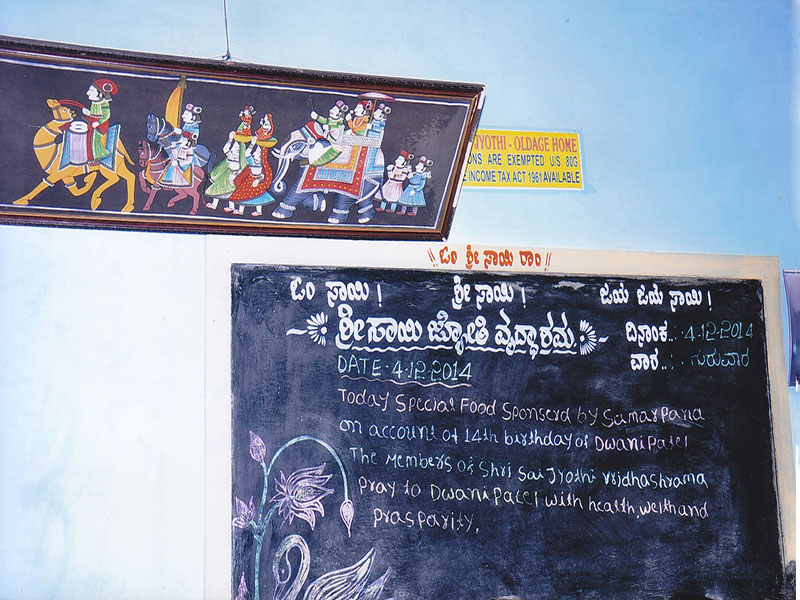 JYOTHI - OLDAGE HOME
ONS ARE EXEMPTED U/S 80G
E INCOME TAX ACT 1961 AVAILABLE
|| ಓಂ ಶ್ರೀ ಸಾಯಿ ರಾಂ ||
ಓಂ ಸಾಯಿ ! ಶ್ರೀ ಸಾಯಿ ! ಜಯ ಜಯ ಸಾಯಿ !
ಶ್ರೀ ಸಾಯಿ ಜ್ಯೋತಿ ವೃದ್ಧಾಶ್ರಮ
ದಿನಾಂಕ..: 4-12-2014
ವಾರ..: ಗುರುವಾರ
DATE - 4-12-2014
Today Special Food Sponserd by Samarpana
on account of 14th birthday of Dwani Patel
The Members of Shri Sai Jyothi vridhashrama
pray to Dwani Patel with health, welth and
prasparity.